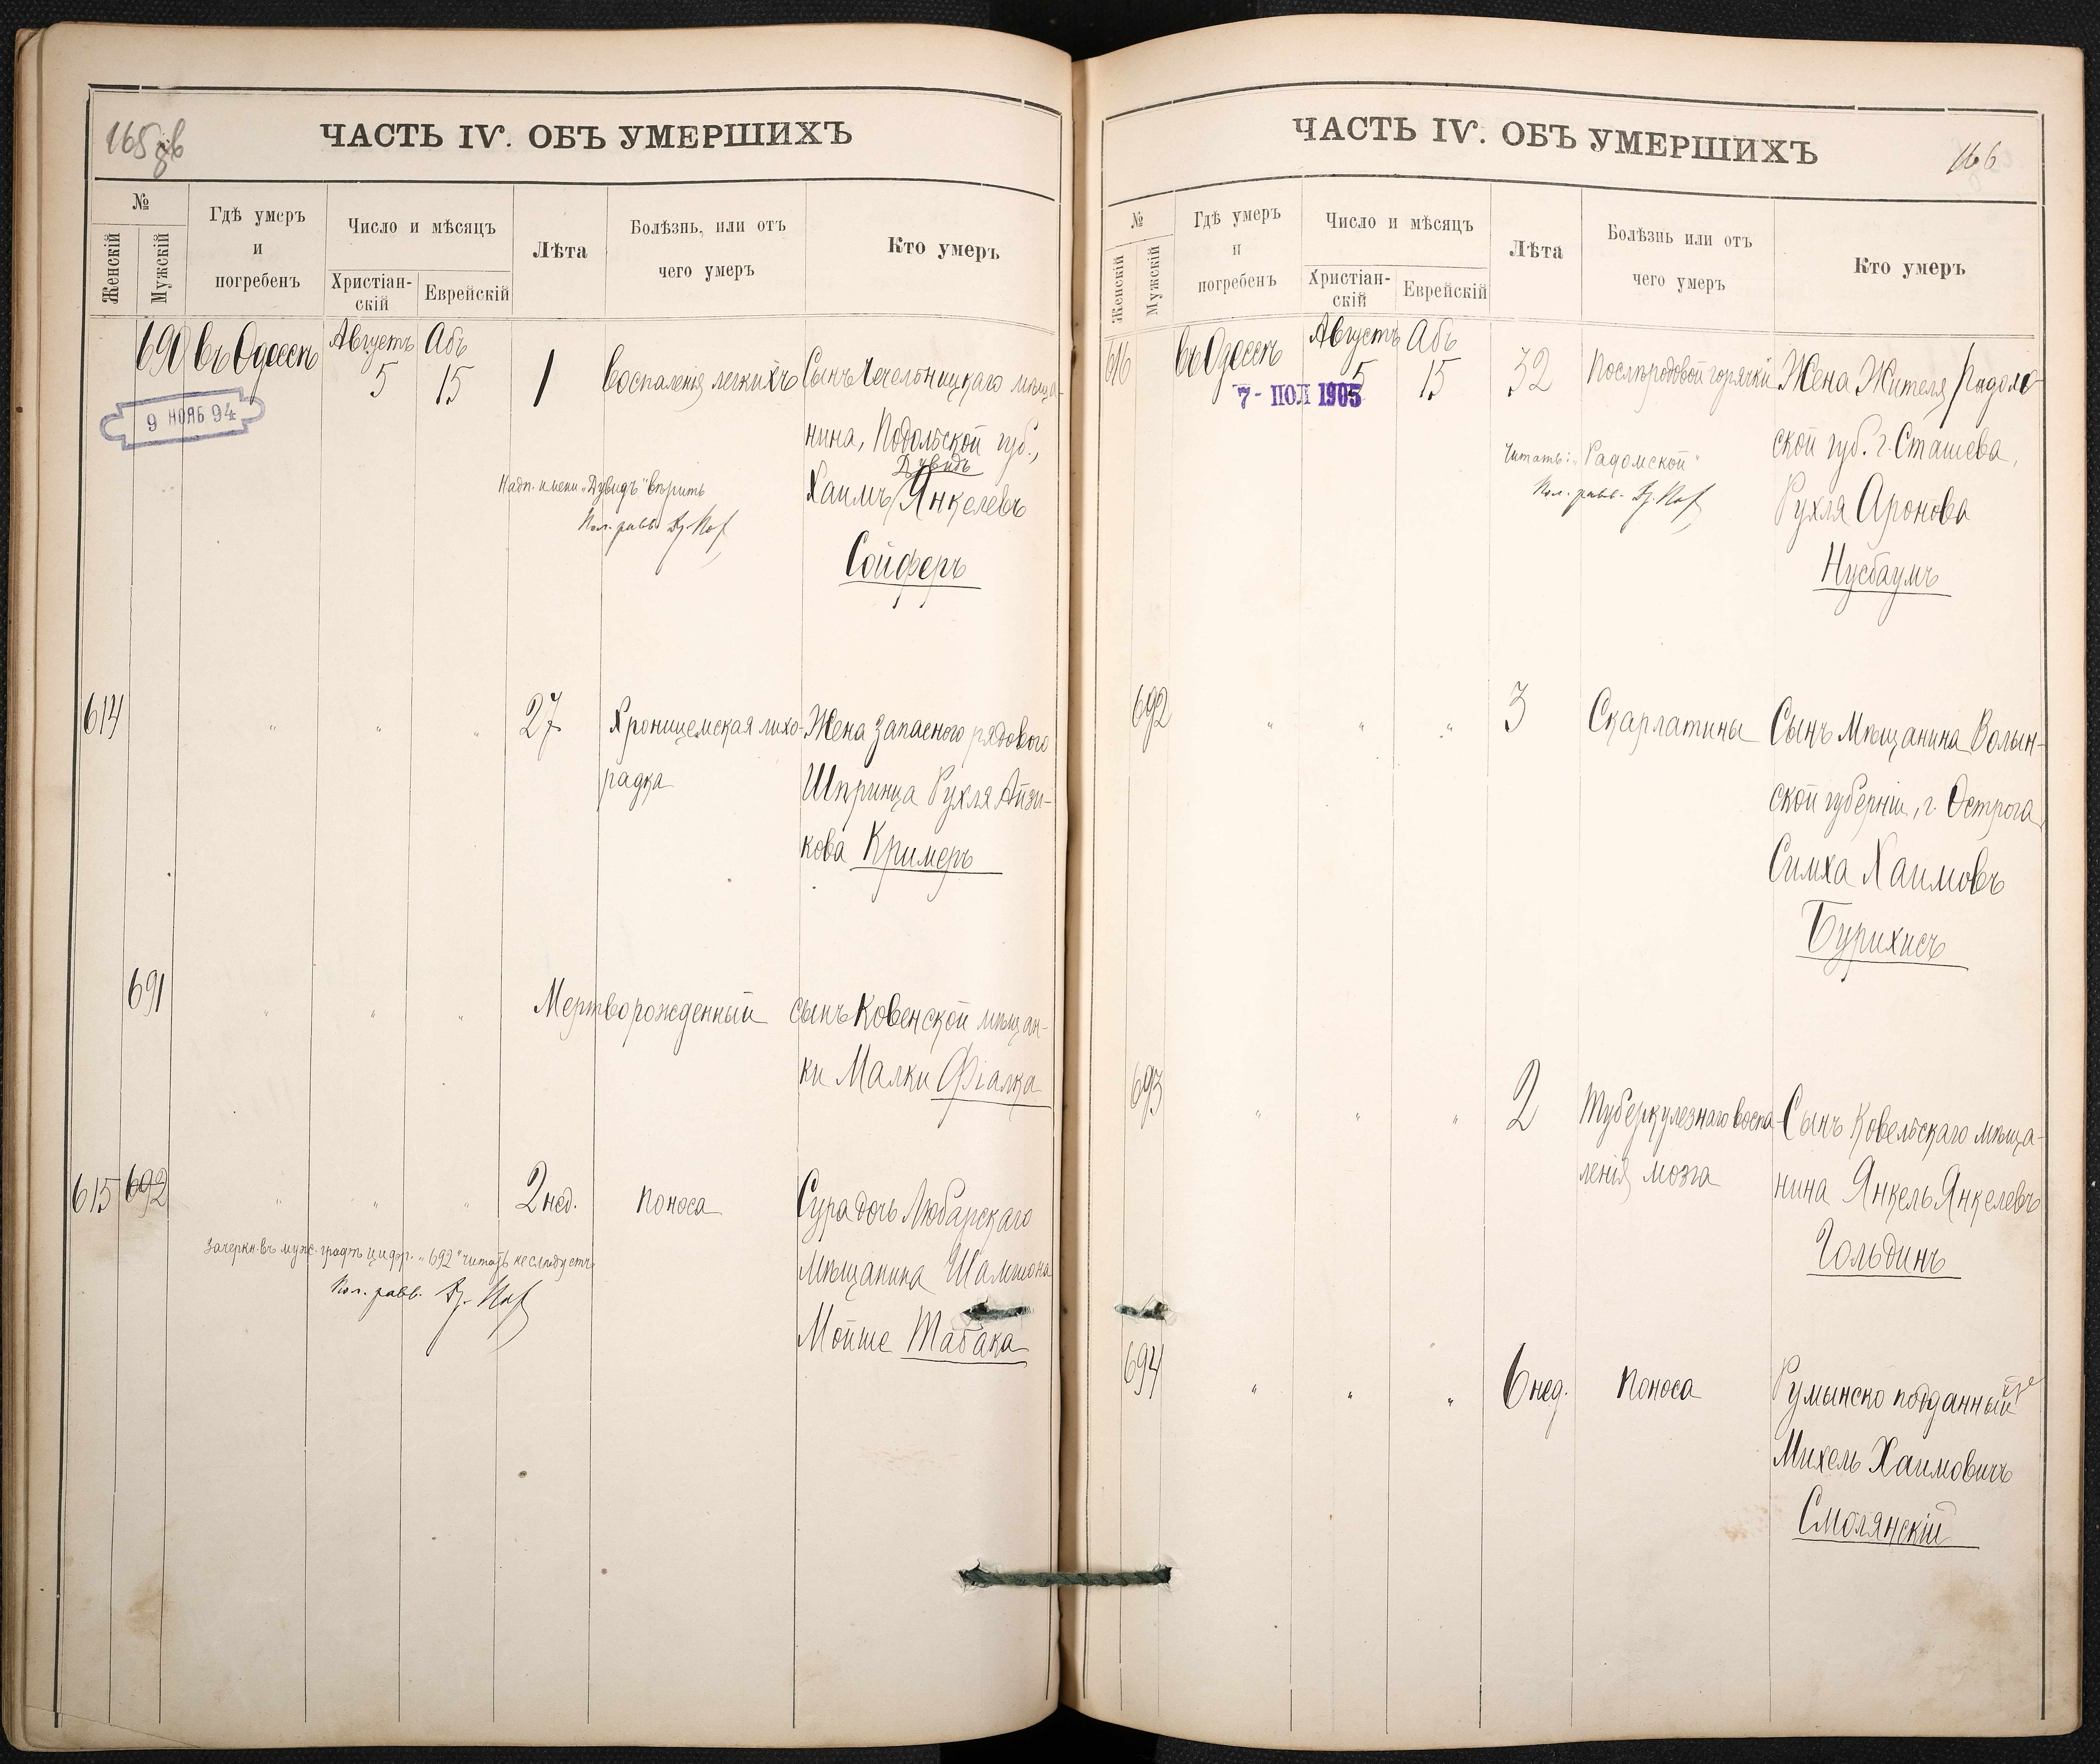 165 об
ЧАСТЬ IV. ОБЪ УМЕРШИХЪ
№
Женскій
Мужскій
Гдѣ умеръ
и
погребенъ
Число и мѣсяцъ
Христіан-
скій
Еврейскій
Лѣта
Болѣзнь, или отъ
чего умеръ
Кто умеръ
690 въ Одессѣ Августъ 5 Абъ 15 1 Воспаленія легкихъ Сынъ Чечельницкаго мѣща-
9 НОЯБ 94
нина, Подольской губ.,
Дувидъ
Хаимъ/Янкелевъ
Надп. имени „Дувидъ" вѣрить
Сойферъ
614 " " " 27 Хроническая лихо- Жена запасного рядового
радка Шпринца Рухля Айзи-
кова Кримеръ
691 " " " Мертворожденный сынъ Ковенской мѣщан-
ки Малки Фіалка
615 692 " " " 2 нед. Поноса Сура дочь Любарскаго
мѣщанина Шамшона
Мойше Табака
Зачеркн. въ муж. графѣ цифр. „692" читать не слѣдуетъ
166
ЧАСТЬ IV. ОБЪ УМЕРШИХЪ
№
Женскій
Мужскій
Гдѣ умеръ
и
погребенъ
Число и мѣсяцъ
Христіан-
скій
Еврейскій
Лѣта
Болѣзнь или отъ
чего умеръ
Кто умеръ
616 въ Одессѣ Августъ 5 Абъ 15 32 Послѣродовой горячки Жена Жителя Радом
7 - ПОЛ 1905
ской губ. г. Сташева,
Читать: „Радомской"
Рухля Аронова
Нусбаумъ
692 " " " 3 Скарлатины Сынъ Мѣщанина Волын-
ской губерніи, г. Острога
Симха Хаимовъ
Бурихисъ
693 " " " 2 Туберкулезнаго воспа- Сынъ Ковельскаго мѣща-
ленія мозга нина Янкель Янкелевъ
Гольдинъ
694 " " " 6 нед. Поноса Румынско подданный
Михель Хаимовичъ
Смолянскій